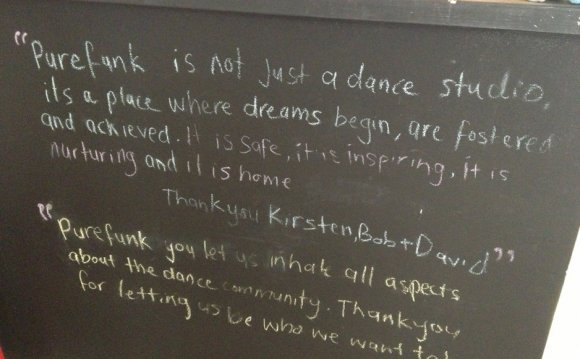 "Purefunk is not just a dance studio,
its a place where dreams begin, are fostered
and achieved. It is safe, it is inspiring, it is
nurturing and it is home
Thankyou Kirsten, Bob + David"
"Purefunk you let us inhale all aspects
about the dance community. Thankyou
for letting us be who we want to!